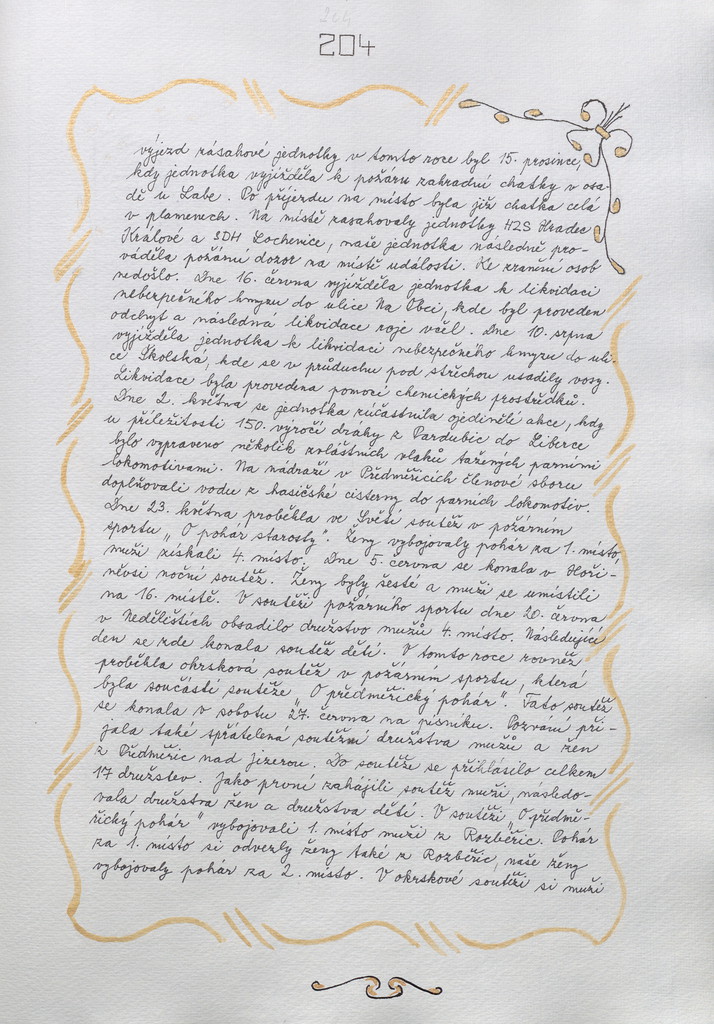 204
204
výjezd zásahové jednotky v tomto roce byl 15. prosince,
kdy jednotka vyjížděla k požáru zahradní chatky v osa-
dě u Labe. Po příjezdu na místo byla již chatka celá
v plamenech. Na místě zasahovaly jednotky HZS Hradec
Králové a SDH Lochenice, naše jednotka následně pro-
váděla požární dozor na místě události. Ke zranění osob
nedošlo. Dne 16. června vyjížděla jednotka k likvidaci
nebezpečného hmyzu do ulice Na Obci, kde byl proveden
odchyt a následná likvidace roje včel. Dne 10. srpna
vyjížděla jednotka k likvidaci nebezpečného hmyzu do uli-
ce Školská, kde se v průduchu pod střechou usadily vosy.
Likvidace byla provedena pomocí chemických prostředků.
Dne 2. května se jednotka zúčastnila ojedinělé akce, kdy
u příležitosti 150. výročí dráhy z Pardubic do Liberce
bylo vypraveno několik zvláštních vlaků tažených parními
lokomotivami. Na nádraží v Předměřicích členové sboru
doplňovali vodu z hasičské cisterny do parních lokomotiv.
Dne 23. května proběhla ve Světí soutěž v požárním
sportu „O pohár starosty". Ženy vybojovaly pohár za 1. místo,
muži získali 4. místo. Dne 5. června se konala v Hoři-
něvsi noční soutěž. Ženy byly šesté a muži se umístili
na 16. místě. V soutěži požárního sportu dne 20. června
v Nedělištích obsadilo družstvo mužů 4. místo. Následující
den se zde konala soutěž dětí. V tomto roce rovněž
proběhla okrsková soutěž v požárním sportu, která
byla součástí soutěže „O předměřický pohár". Tato soutěž
se konala v sobotu 27. června na písníku. Pozvání při-
jala také spřátelená soutěžní družstva mužů a žen
z Předměřic nad Jizerou. Do soutěže se přihlásilo celkem
17 družstev. Jako první zahájili soutěž muži, následo-
vala družstva žen a družstva dětí. V soutěži „O předmě-
řický pohár" vybojovali 1. místo muži z Rozběřic. Pohár
za 1. místo si odvezly ženy také z Rozběřic, naše ženy
vybojovaly pohár za 2. místo. V okrskové soutěži si muži